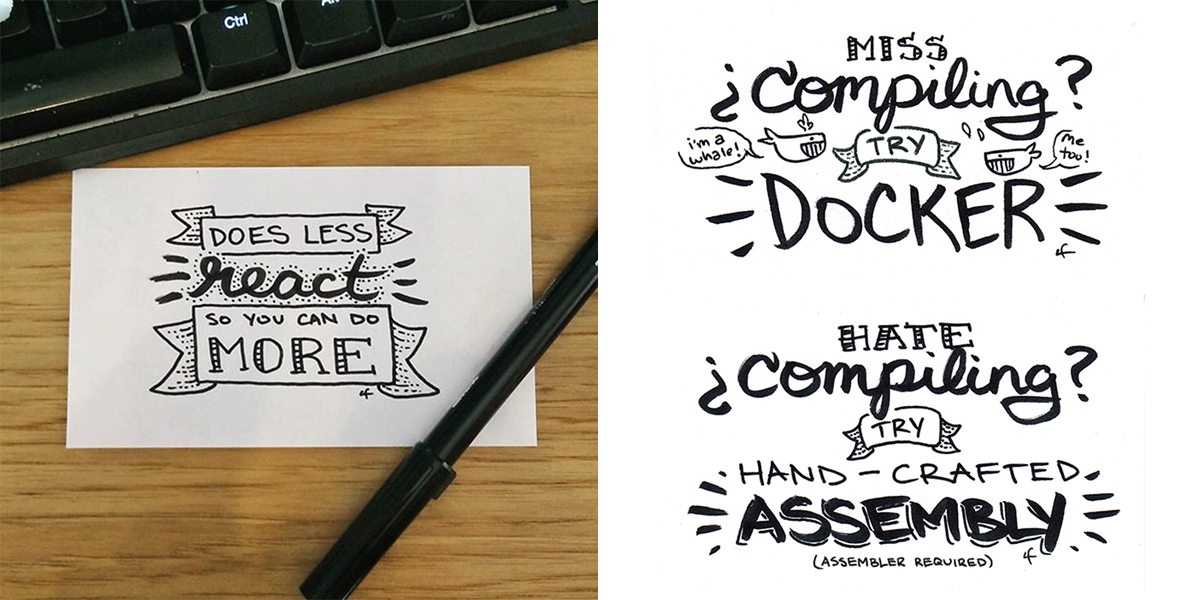 Ctrl
DOES LESS
react
SO YOU CAN DO
MORE
MISS
¿Compiling?
i'm a
whale!
TRY
me
too!
DOCKER
HATE
¿Compiling?
TRY
HAND-CRAFTED
ASSEMBLY
(ASSEMBLER REQUIRED)